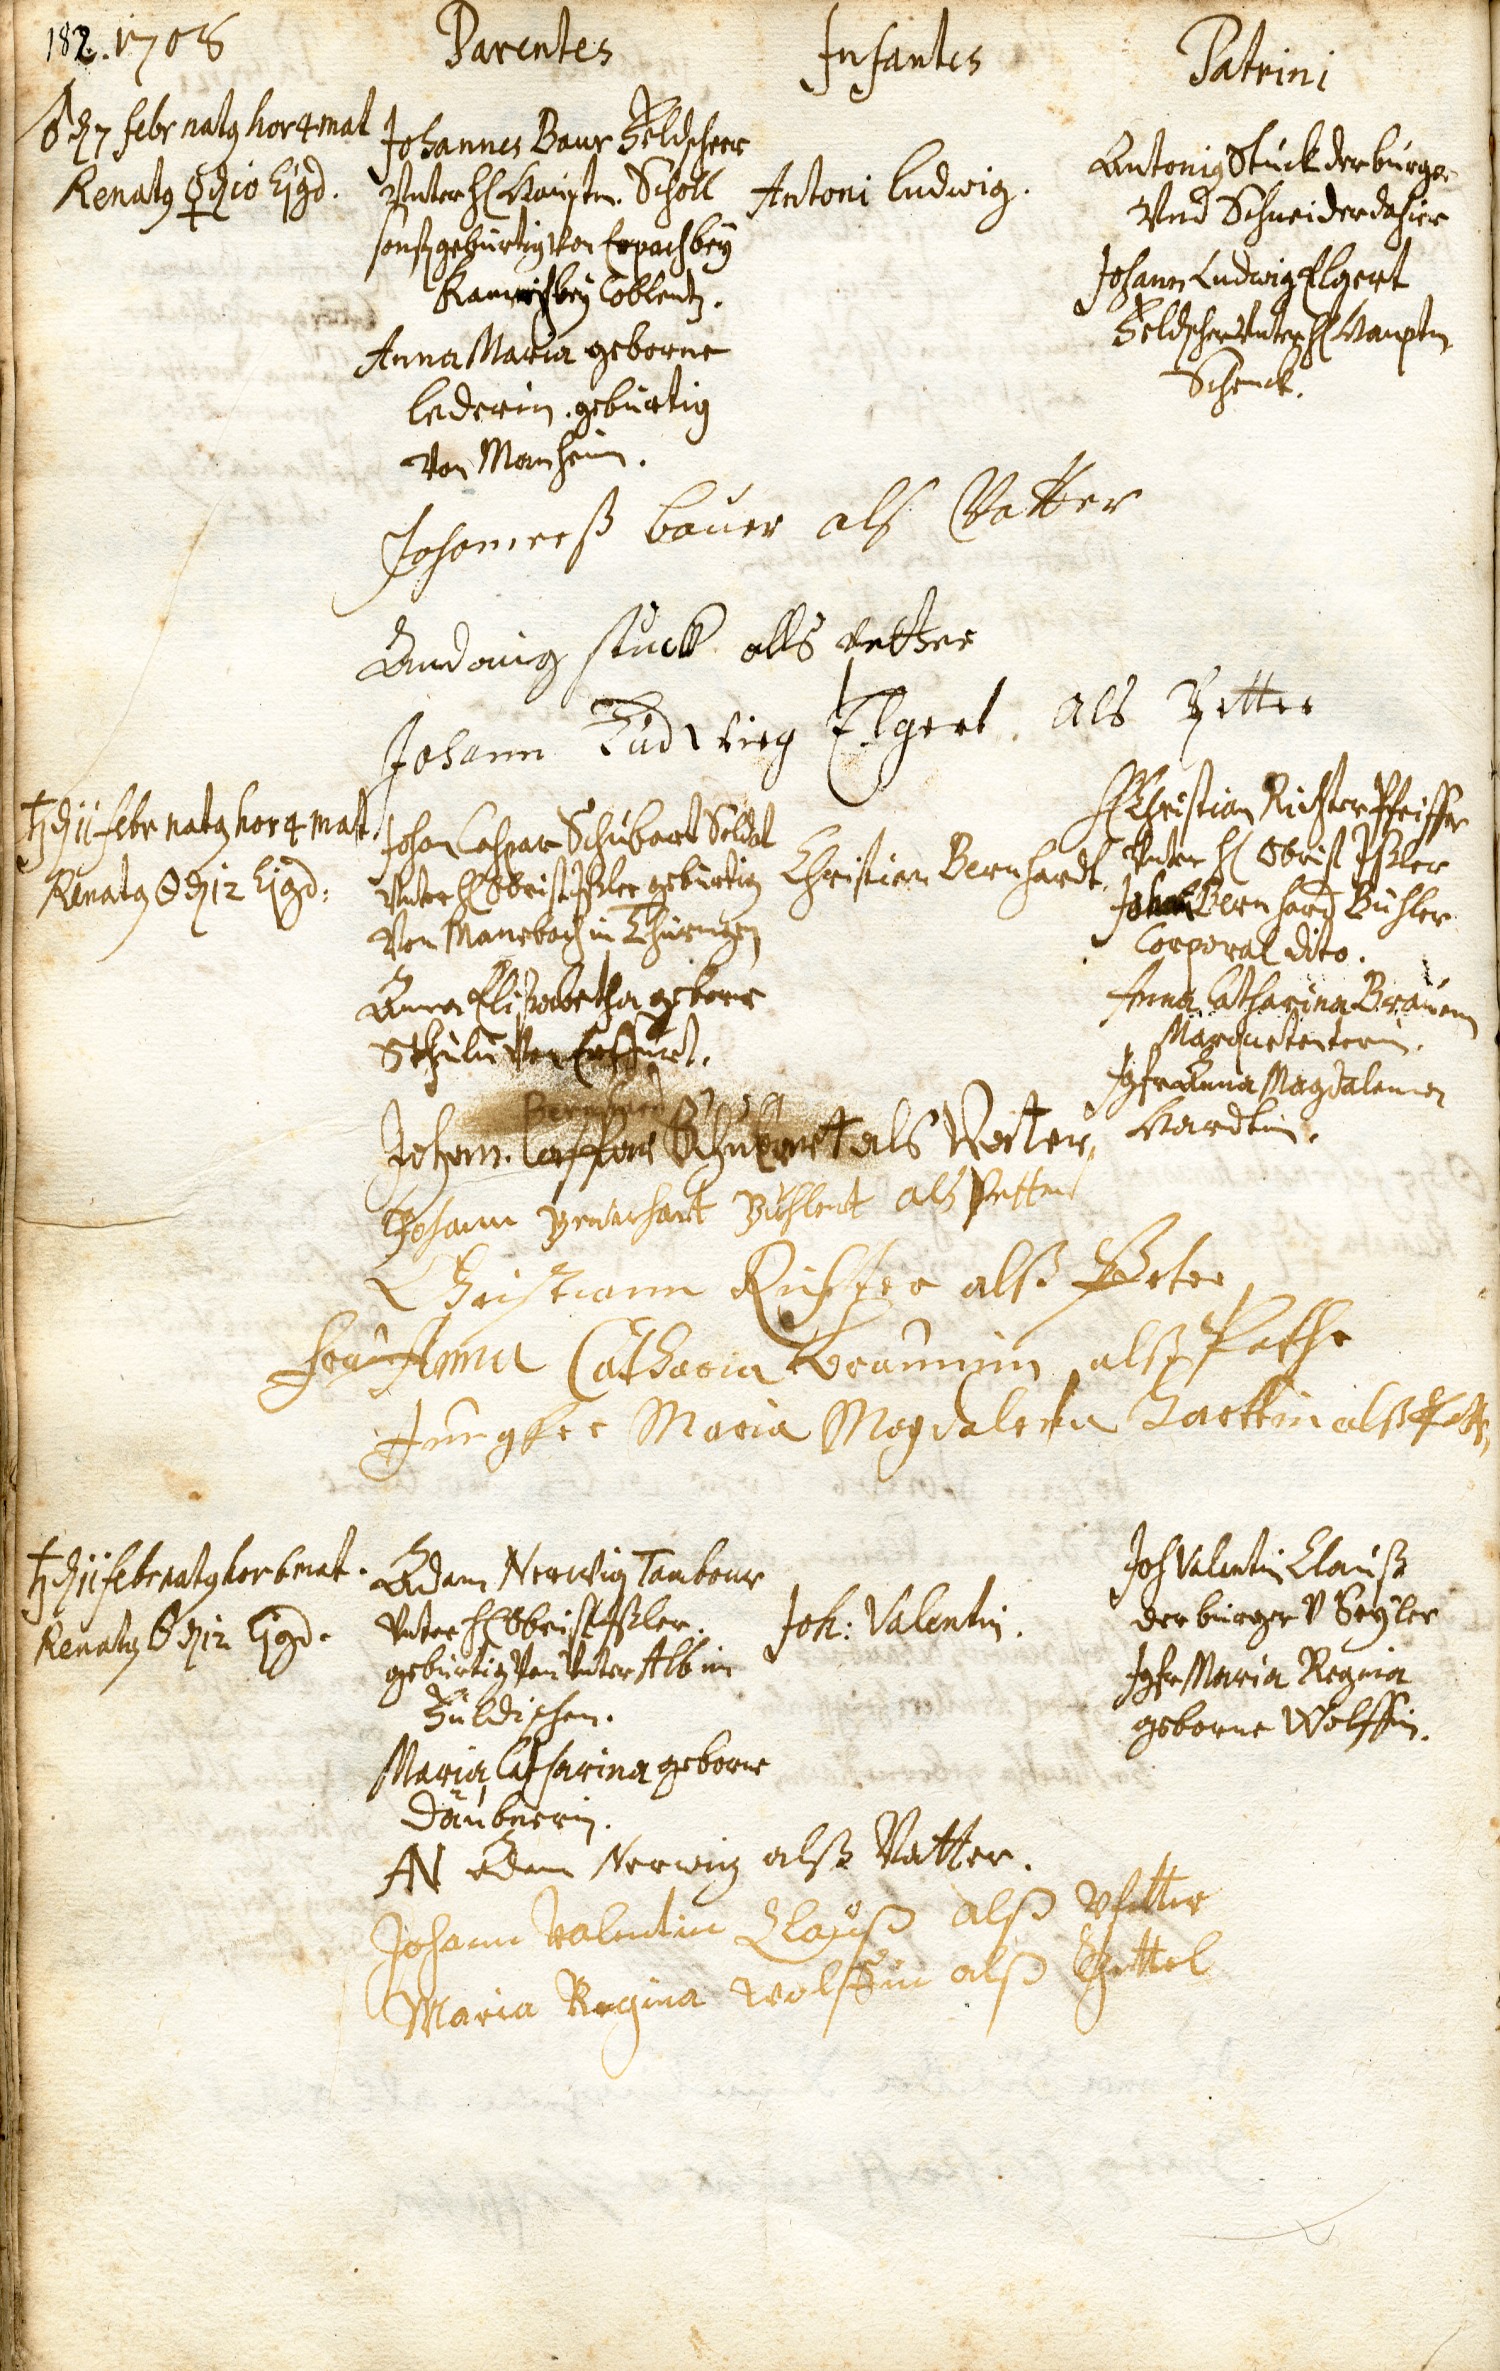 182. 1708
Parentes
Infantes
Patrini
♂ d 7 febr natg hor 4 mat
Renatg ♀ d 10 Ejqd.
Johannes Baur Feldscheer
Unter H Hauptm. Scholl
sonst gebürtig von Erpach bey
bey Coblentz.
Anna Maria geborne
Lederin. gebürtig
von Manheim.
Antoni Ludwig.
Antonig Stuck der burger
Und Schneider dahier
Johann Ludwig Elgert
Feldscher Unter H Hauptm
Schenck.
Johanneß bauer als Vatter
Andonig stuck alls
Johann Ludwieg Elgert. als Petter
♄ d 11 febr natg hor 4 mat.
Renatg ☉ d 12 Ejqd:
Johan Caspar Schubart Soldat
Unter H Obrist Ißler gebürtig
Von Manebach in Thüringen
Anna Elisabetha geborne
Schulin Von Erffurt.
Christian Bernhardt.
H Christian Richter Pfeiffer
Unter H Obrist Ißler
Johan Bernhard Buhler
Corporal dito.
Anna Catharina Braunin
Marquetenterin.
Jgfr Anna Magdalena
Hardtin.
Johann. Casspar Schubart als Vater,
Johann Bernhart Buhlert als Petter
Christiann Richter alß Peter
Frau Anna Catharia Braunnin alß Pathe
Jungfer Maria Magdalena alß
♄ d 11 febr natg hor 6 mat.
Renatg ☉ d 12 Ejqd.
Adam Nerwig Tambour
Unter H Obrist Ißler.
gebürtig Von Unter Alb im
Fuldischen.
Maria Catharina geborne
Däubnerin.
Joh: Valentin.
Joh Valentin Clauß
der burger V Seyler
Jgfr Maria Regina
geborne Wolffin.
AN Adam Nerwig alß Vatter.
Johann Valentin Clauß alß Pfetter
Maria Regina Wolffin alß Gettel